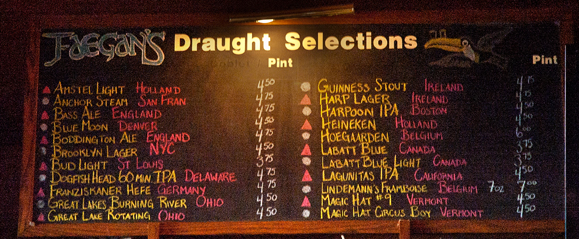 FAEGAN'S Draught Selections
Pint Pint
AMSTEL LIGHT HOLLAND 4.50
ANCHOR STEAM SAN FRAN 4.75
BASS ALE ENGLAND 4.75
BLUE MOON DENVER 4.50
BODDINGTON ALE ENGLAND 4.75
BROOKLYN LAGER NYC 4.50
BUD LIGHT ST LOUIS 3.75
DOGFISH HEAD 60 MIN. IPA DELAWARE 4.75
FRANZISKANER HEFE GERMANY 4.75
GREAT LAKES BURNING RIVER OHIO 4.50
GREAT LAKE ROTATING OHIO 4.50
GUINNESS STOUT IRELAND 4.75
HARP LAGER IRELAND
HARPOON IPA BOSTON
HEINEKEN HOLLAND
HOEGAARDEN BELGIUM
LABATT BLUE CANADA 3.75
LABATT BLUE LIGHT CANADA 3.75
LAGUNITAS IPA CALIFORNIA 4.50
LINDEMANN'S FRAMBOISE BELGIUM 7oz 7.00
MAGIC HAT #9 VERMONT 4.50
MAGIC HAT CIRCUS BOY VERMONT 4.50